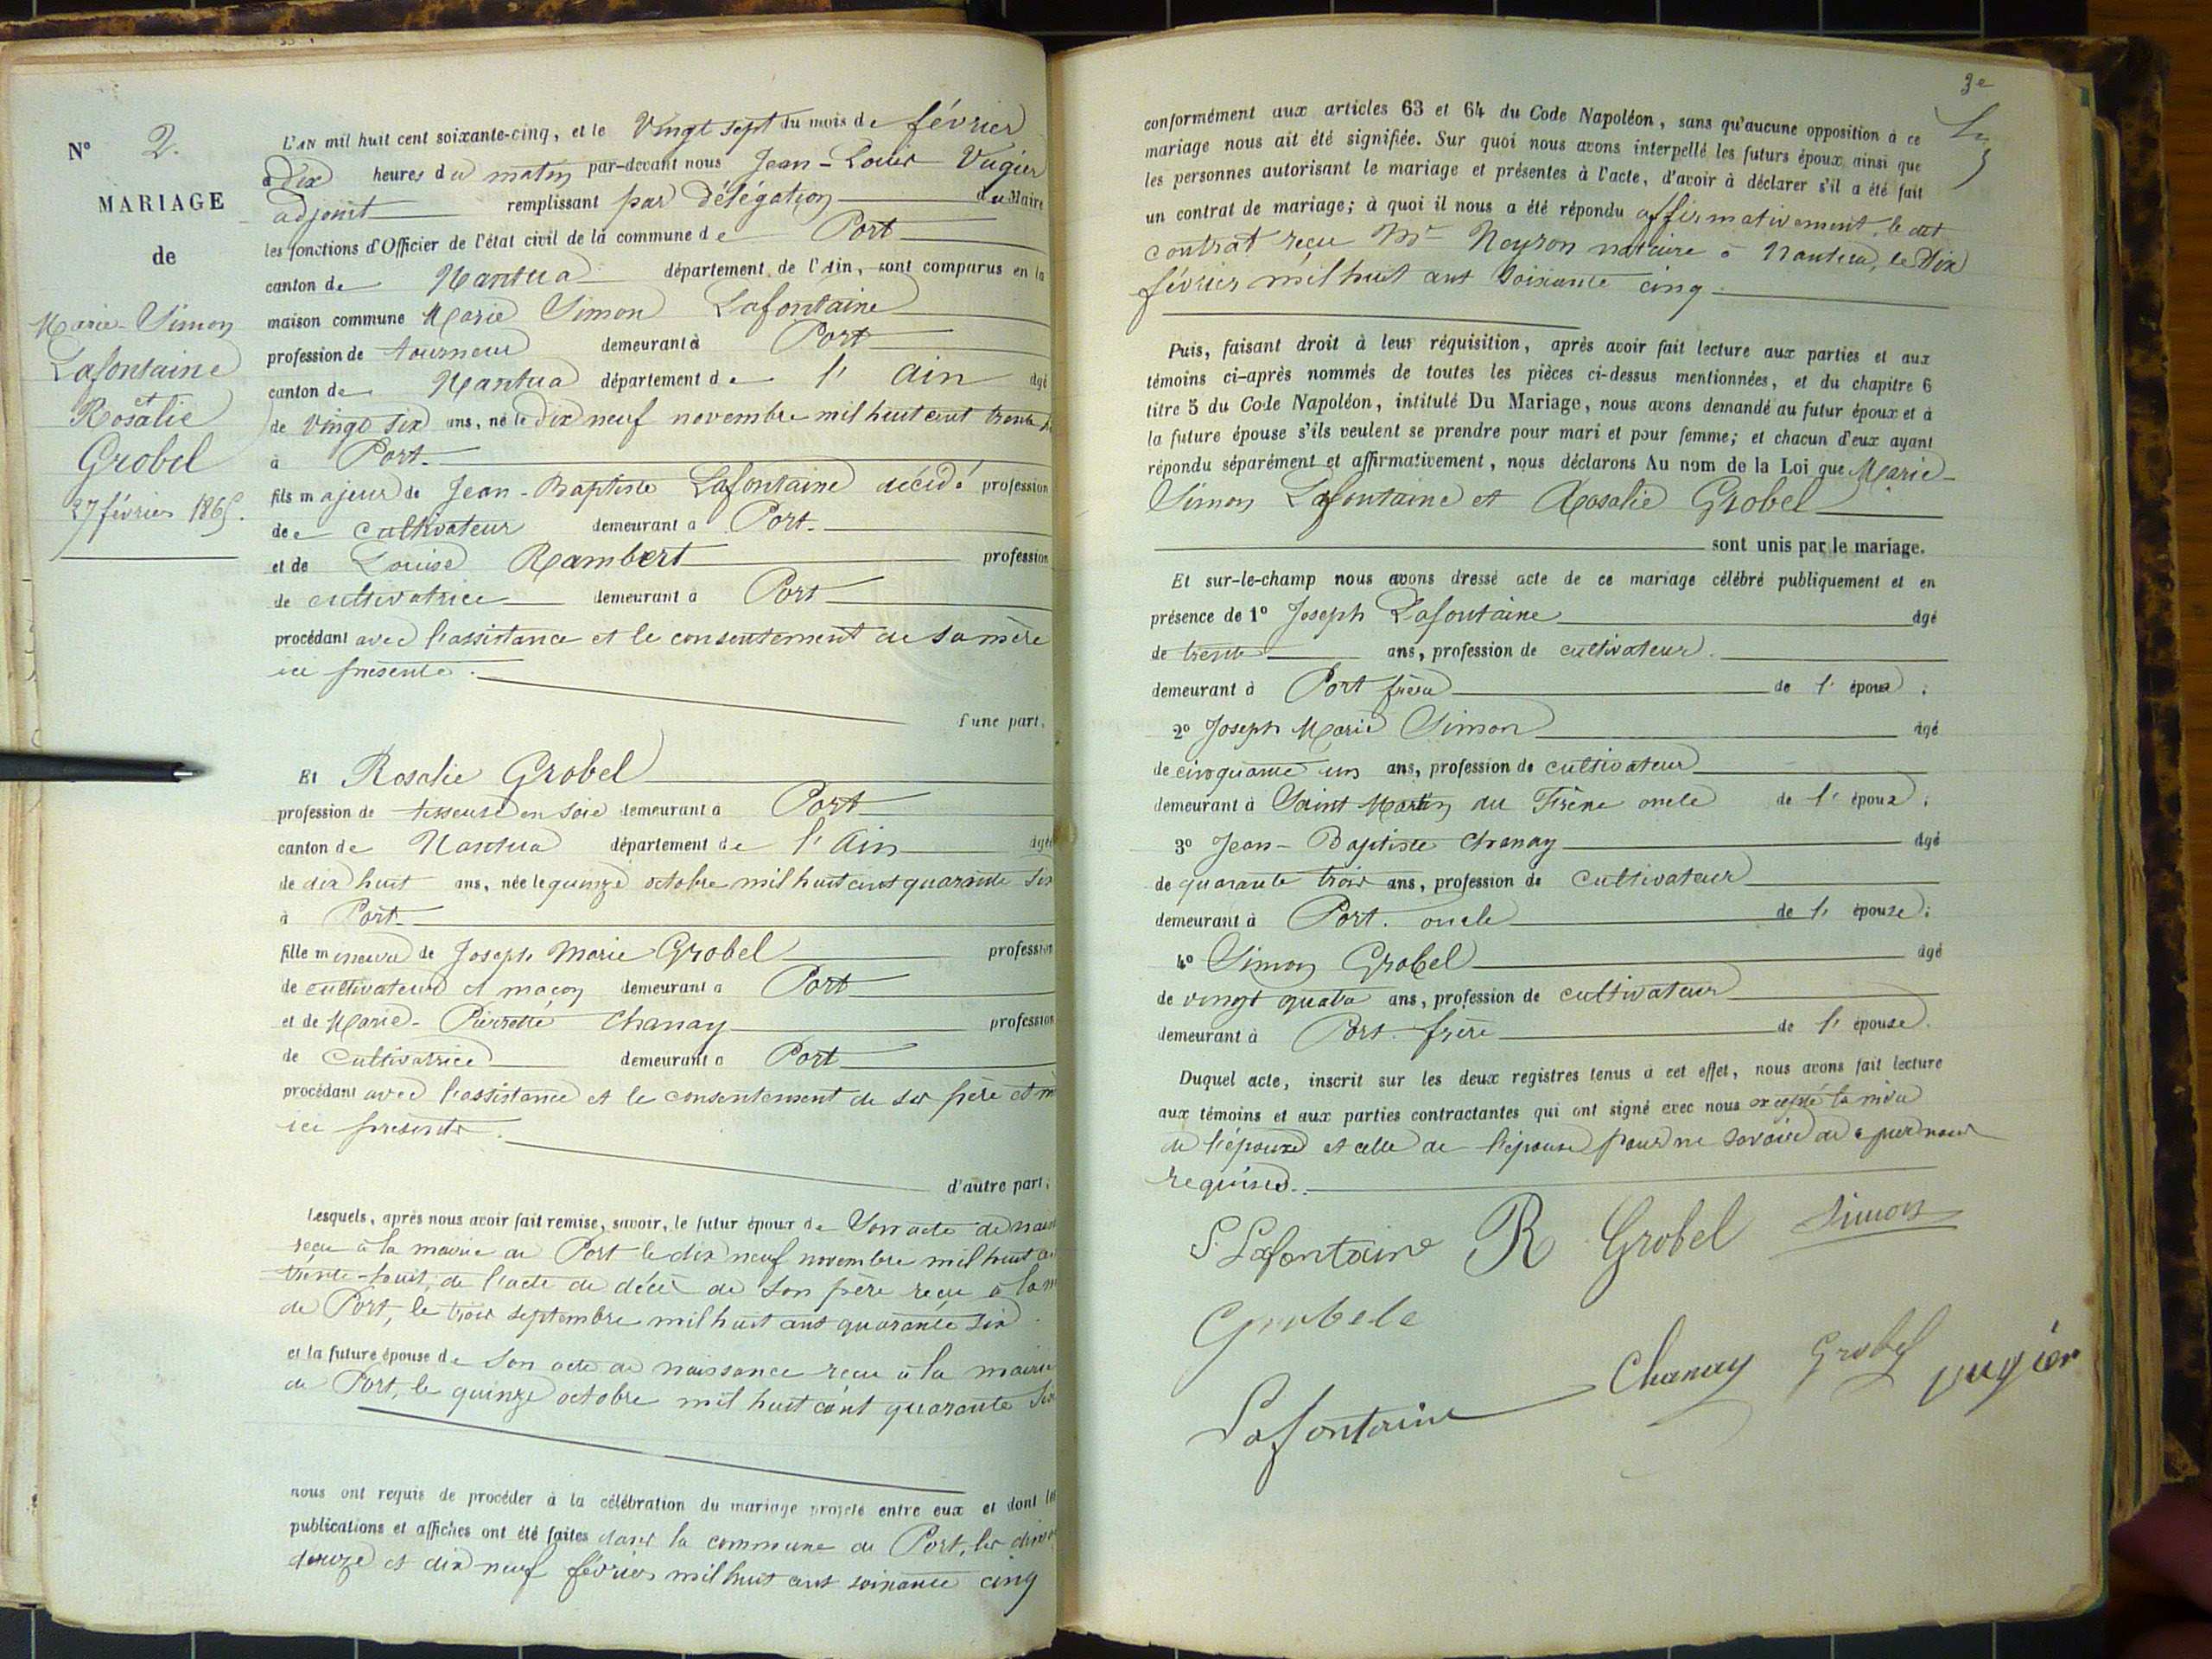 N° 2.
MARIAGE
de
Marie-Simon
Lafontaine
et
Rosalie
Grobel
27 février 1865.
L'AN mil huit cent soixante-cinq, et le Vingt sept du mois de février
à Dix heures du matin par-devant nous Jean-Louis Vugier
adjoint remplissant par délégation du Maire
les fonctions d'Officier de l'état civil de la commune de Port
canton de Nantua département de l'Ain, sont comparus en la
maison commune Marie Simon Lafontaine
profession de tourneur demeurant à Port
canton de Nantua département de l'Ain âgé
de Vingt six ans, né le Dix neuf novembre mil huit cent trente
à Port.
fils majeur de Jean-Baptiste Lafontaine décédé profession
de cultivateur demeurant à Port.
et de Louise Rambert profession
de cultivatrice demeurant à Port
procédant avec l'assistance et le consentement de sa mère
ici présente.
d'une part,
Et Rosalie Grobel
profession de tisseuse en soie demeurant à Port
canton de Nantua département de l'Ain âgée
de dix huit ans, née le quinze octobre mil huit cent quarante six
à Port.
fille mineure de Joseph Marie Grobel profession
de cultivateur et maçon demeurant à Port
et de Marie-Pierrette Chanay profession
de cultivatrice demeurant à Port
procédant avec l'assistance et le consentement de ses père et m
ici présents.
d'autre part;
Lesquels, après nous avoir fait remise, savoir, le futur époux de Son acte de nais
reçu à la mairie de Port le dix neuf novembre mil huit ce
trente-huit, de l'acte de décès de son père reçu à la m
de Port, le trois septembre mil huit cent quarante six
et la future épouse de Son acte de naissance reçu à la mairie
de Port, le quinze octobre mil huit cent quarante six
nous ont requis de procéder à la célébration du mariage projeté entre eux et dont les
publications et affiches ont été faites dans la commune de Port, les dim
douze et dix neuf février mil huit cent soixante cinq
3e
conformément aux articles 63 et 64 du Code Napoléon, sans qu'aucune opposition à ce
mariage nous ait été signifiée. Sur quoi nous avons interpellé les futurs époux, ainsi que
les personnes autorisant le mariage et présentes à l'acte, d'avoir à déclarer s'il a été fait
un contrat de mariage; à quoi il nous a été répondu affirmativement, le dit
contrat reçu Me Neyron notaire à Nantua, le Dix
février mil huit cent soixante cinq.
Puis, faisant droit à leur réquisition, après avoir fait lecture aux parties et aux
témoins ci-après nommés de toutes les pièces ci-dessus mentionnées, et du chapitre 6
titre 5 du Code Napoléon, intitulé Du Mariage, nous avons demandé au futur époux et à
la future épouse s'ils veulent se prendre pour mari et pour femme; et chacun d'eux ayant
répondu séparément et affirmativement, nous déclarons Au nom de la Loi que Marie-
Simon Lafontaine et Rosalie Grobel
sont unis par le mariage.
Et sur-le-champ nous avons dressé acte de ce mariage célébré publiquement et en
présence de 1° Joseph Lafontaine âgé
de trente ans, profession de cultivateur.
demeurant à Port frère de l'époux;
2° Joseph Marie Simon âgé
de cinquante un ans, profession de cultivateur
demeurant à Saint Martin du Frêne oncle de l'époux;
3° Jean-Baptiste Chanay âgé
de quarante trois ans, profession de cultivateur
demeurant à Port. oncle de l'épouse;
4° Simon Grobel âgé
de vingt quatre ans, profession de cultivateur
demeurant à Port. frère de l'épouse.
Duquel acte, inscrit sur les deux registres tenus à cet effet, nous avons fait lecture
aux témoins et aux parties contractantes qui ont signé avec nous excepté la mère
de l'époux et celle de l'épouse pour ne savoir de ce
requises.
S Lafontaine R Grobel Simon
Grobele
Chanay Grobel Vugier
Lafontaine